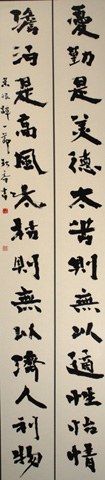 憂勤是美德太苦則無以適性怡情
澹泊是高風太枯則無以濟人利物